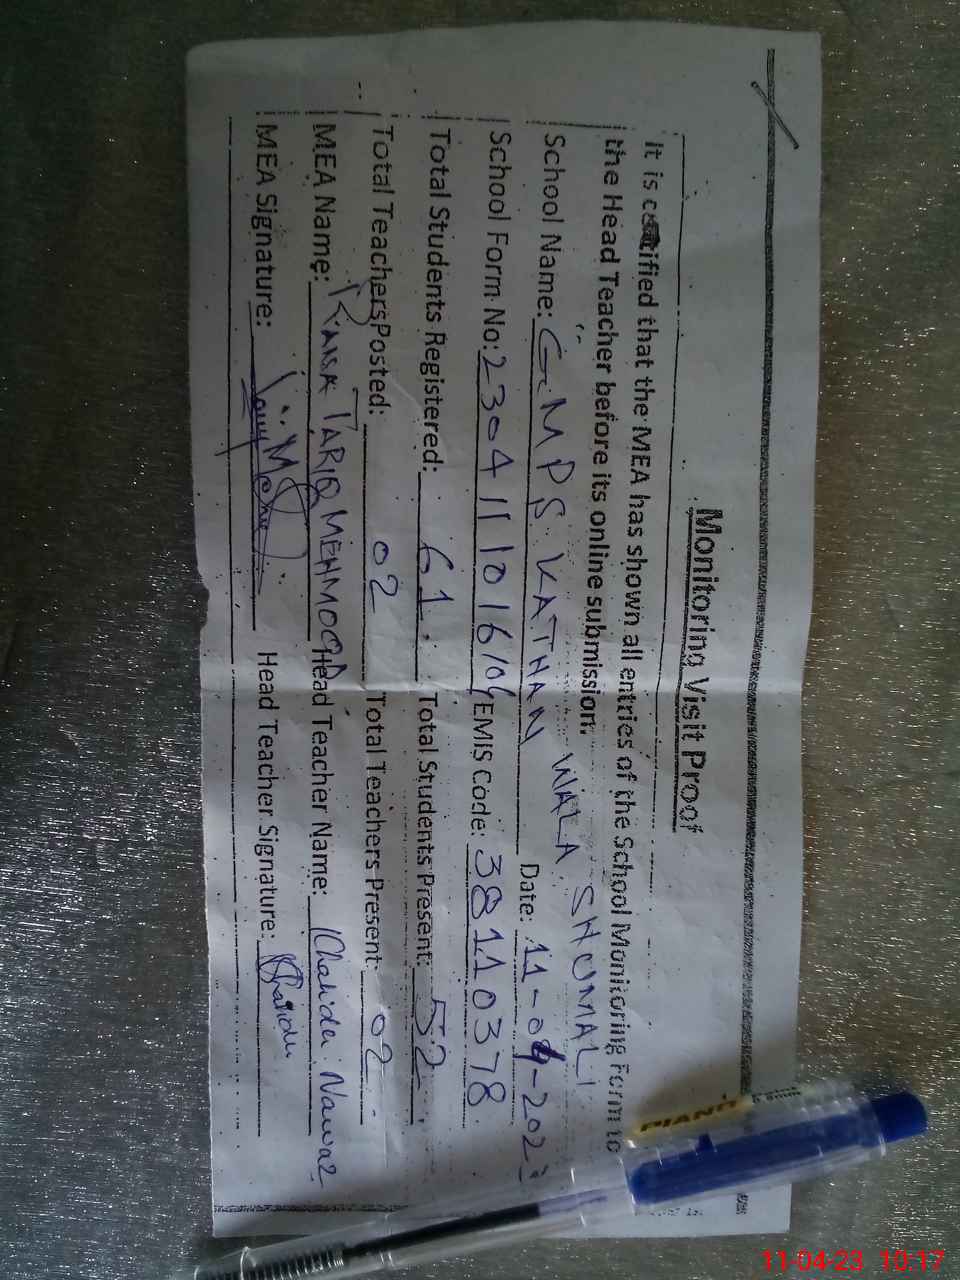 Monitoring Visit Proof
It is certified that the MEA has shown all entries of the School Monitoring Form to
the Head Teacher before its online submission.
School Name: GMPS KATHAN WALA SHUMALI Date: 11-04-202
School Form No: 2304111016104 EMIS Code: 38110378
Total Students Registered: 61 Total Students Present: 52
Total Teachers Posted: 02 Total Teachers Present: 02
MEA Name: RANA TARIQ MEHMOOD Head Teacher Name: Khalida Nawaz
MEA Signature: Head Teacher Signature: Khalida
PIANO
11-04-23 10:17